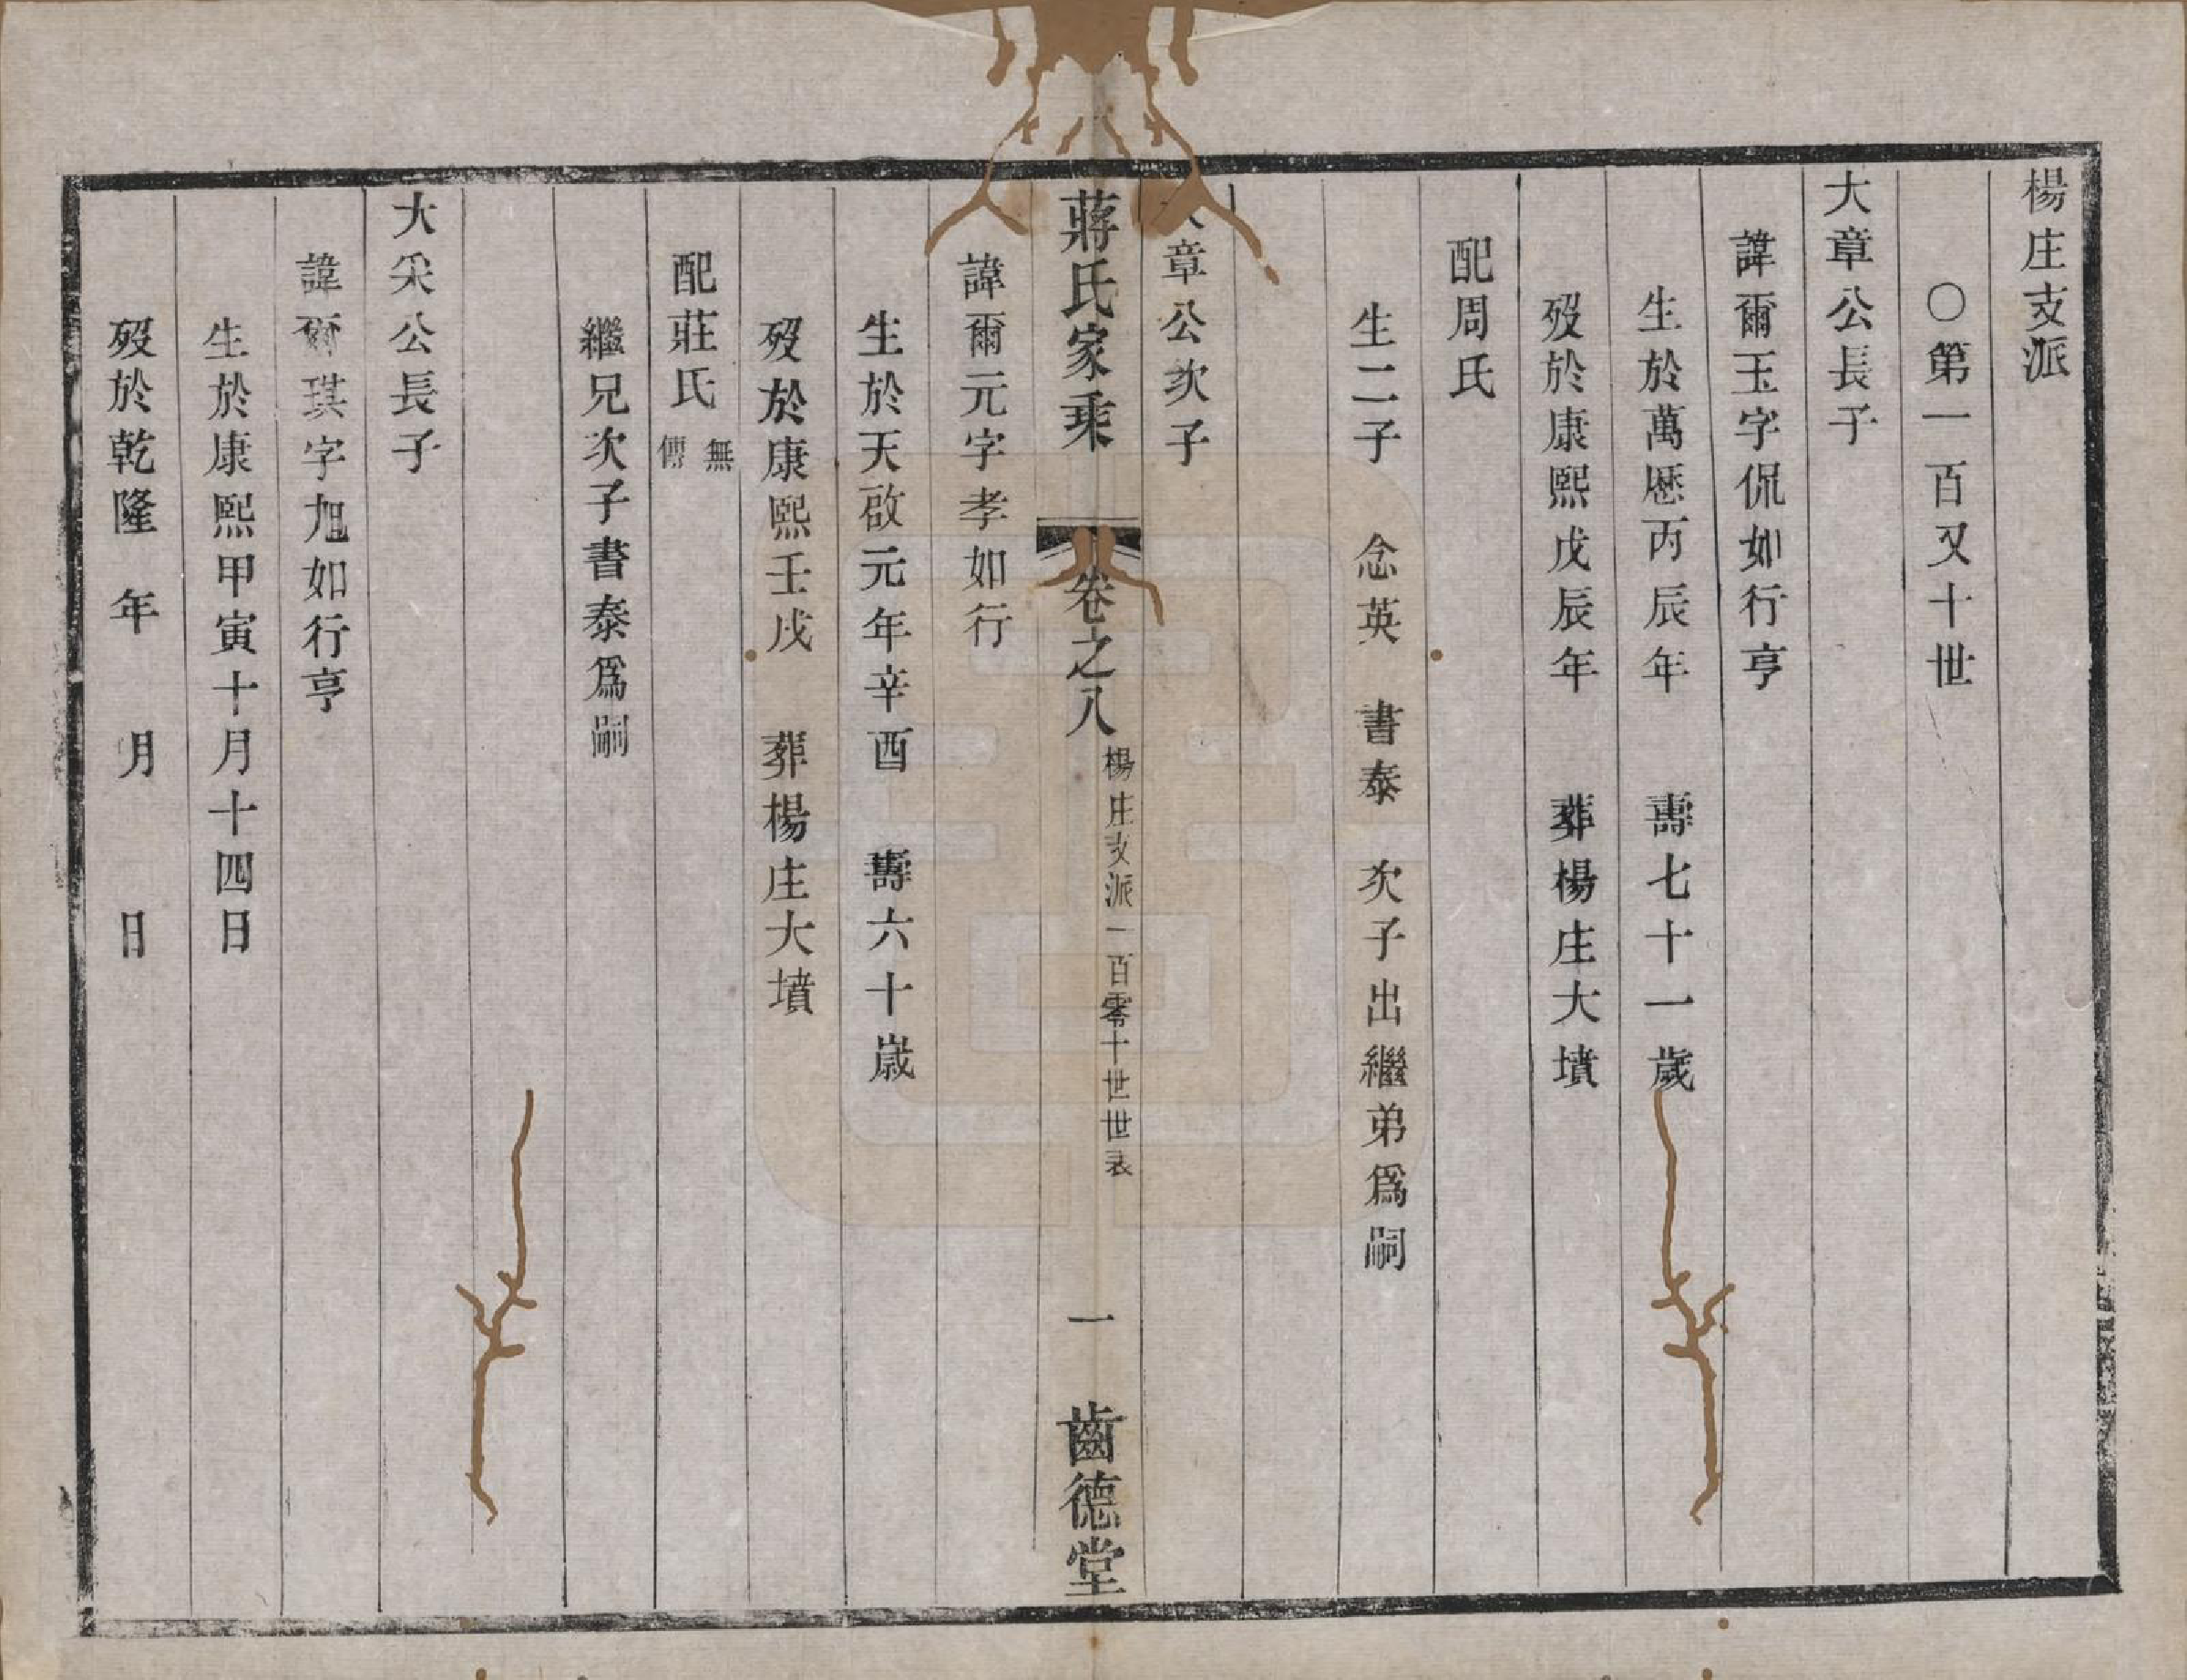 楊庄支派
○第一百又十世
大章公長子
諱爾玉字侃如行亨
生於萬歷丙辰年 壽七十一歲
歿於康熙戊辰年 葬楊庄大墳
配周氏
生二子 念英 書泰 次子出繼弟爲嗣
章公次子
蔣氏家乘 卷之八 楊庄支派一百零十世世表 一 齒德堂
諱爾元字孝如行
生於天啟元年辛酉 壽六十歲
歿於康熙壬戌 葬楊庄大墳
配莊氏 無傳
繼兄次子書泰爲嗣
大采公長子
諱爾琪字旭如行亨
生於康熙甲寅十月十四日
歿於乾隆 年 月 日